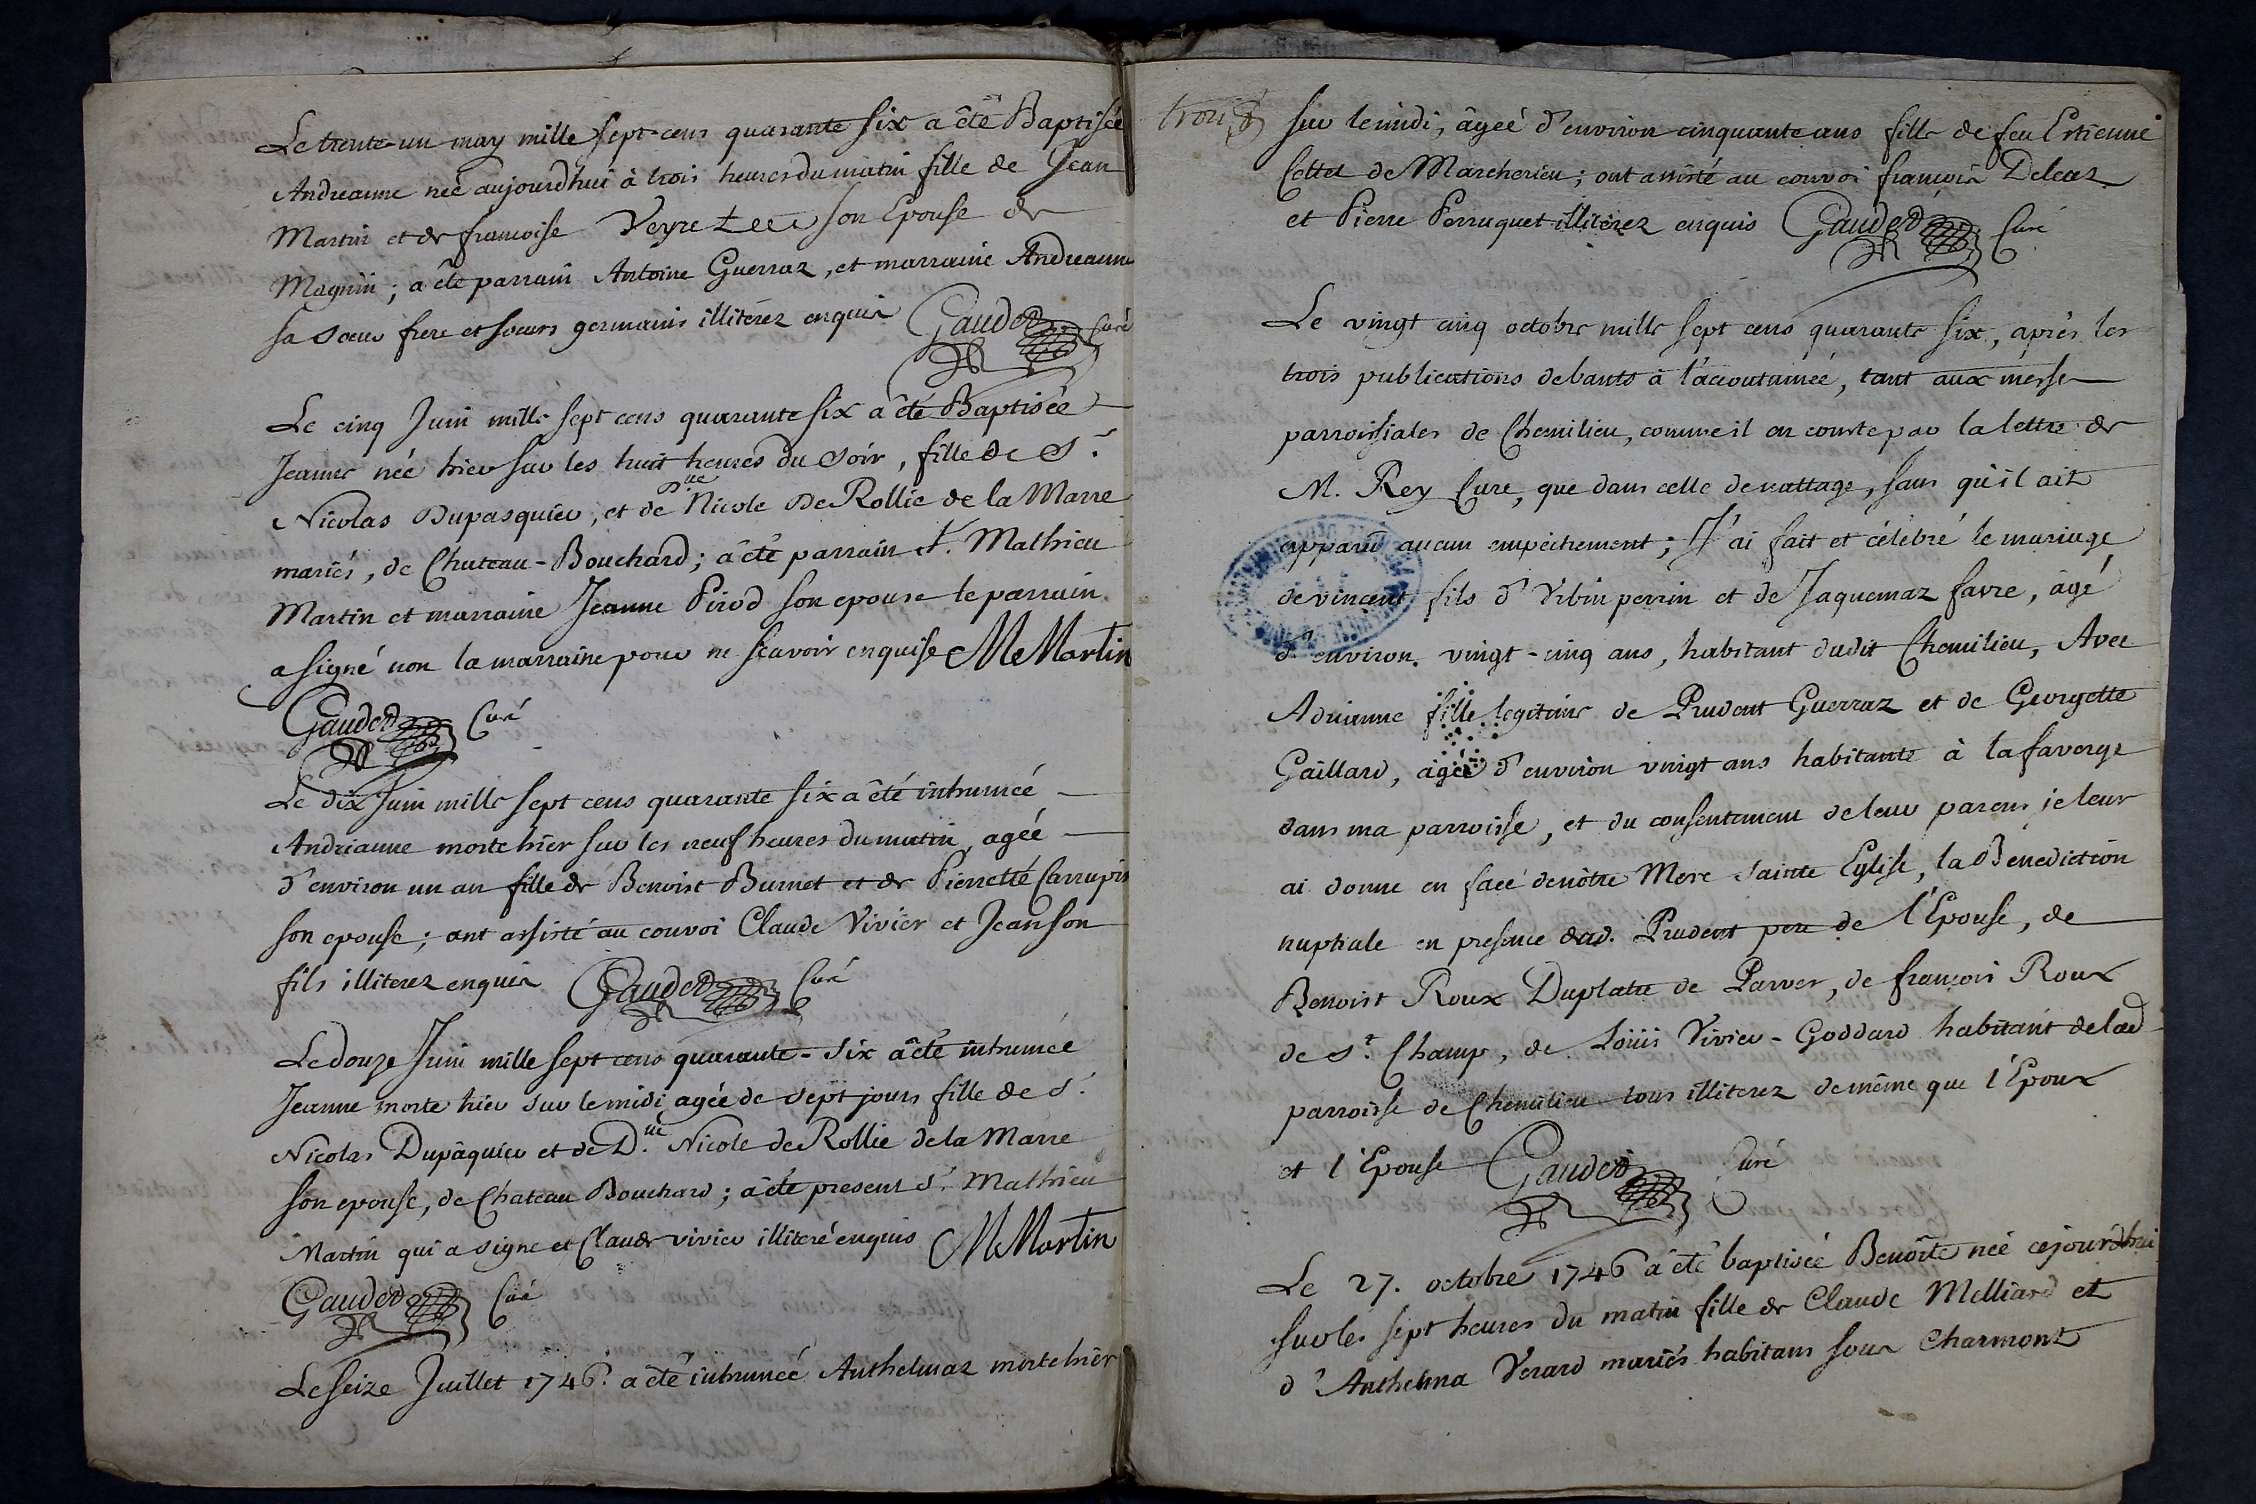 Le trente-un may mille sept-cens quarante six a êtê Baptisée
Andreanne neé aujourdhui à trois heures du matin fille de Jean
Martin et de francoise Veyret son Epouse de
Magnin; a êtê parrain Antoine Guerraz, et marraine Andreanne
sa soeur frere et soeurs germains illitérez enquis Gaudet Curé
Le cinq Juin mille sept cens quarante six a êtê Baptisée
Jeanne née hier sur les huit heures du soir, fille de Sr.
Nicolas Dupasquier, et de Dlle Nicole De Rollie de la Marre
mariés, de Chateau-Bouchard; a êtê parrain Sr. Mathieu
Martin et marraine Jeanne Pirod son epouse le parrain
a signé non la marraine pour ne sçavoir enquise MMartin
Gaudet Curé
Le dix Juin mille sept cens quarante six a êtê inhumeé
Andrianne morte hier sur les neuf heures du matin, agéé
d'environ un an fille de Benoist Burnet et de Pierrette Carrupis
son epouse; ont assisté au convoi Claude Vivier et Jean son
fils illiterez enquis Gaudet Curé
Le douze Juin mille sept cens quarante-six a êtê inhumeé
Jeanne morte hier sur le midi agée de sept jours fille de Sr.
Nicolas Dupâquier et de Dlle. Nicole de Rollie de la Marre
son epouse, de Chateau Bouchard; a êtê present Sr. Mathieu
Martin qui a signe et Claude vivier illiteré enquis MMartin
Gaudet Curé
Le seize Juillet 1746. a êtê inhumeé Anthelmaz morte hier
trois
sur le midi, âgeé d'environ cinquante ans fille de feu Estienne
Collet de Marcherieu; ont assisté au convoi françois Deleaz
et Pierre Perruquet illiterez enquis Gaudet Curé
Le vingt cinq octobre mille sept cens quarante six, après les
trois publications de bants à l'accoutumée, tant aux mésse
parroissiales de Chemilieu, comme il en conste par la lettre de
M. Rey Curé, que dans celle de nattage, sans qu'il ait
apparu aucun empêchement; J'ai fait et célébré le mariage
de vincent fils d'Urbin perrin et de Jaquemaz favre, âgé
d'environ vingt-cinq ans, habitant dudit Chemilieu, Avec
Adrianne fille legitime de Prudent Guerraz et de Georgette
Gaillard, âgéé d'environ vingt ans habitante à la faverge
dans ma parroisse, et du consentement de leur parens je leur
ai donne en face de nôtre Mere Sainte Eglise, la Bénediction
nuptiale en presence dud. Prudent pere de l'Epouse, de
Benoist Roux Duplatre de Parver, de françois Roux
de St. Champ, de Loüis Vivier-Goddard habitant de lad
parroisse de Chemilieu tous illiterez de même que l'Epoux
et l'Epouse Gaudet Curé
Le 27. octobre 1746 a êtê baptiséé Benoîte née cejourdhui
sur les sept heures du matin fille de Claude Milliard et
d'Anthelma Verard mariés habitans sous Charmont